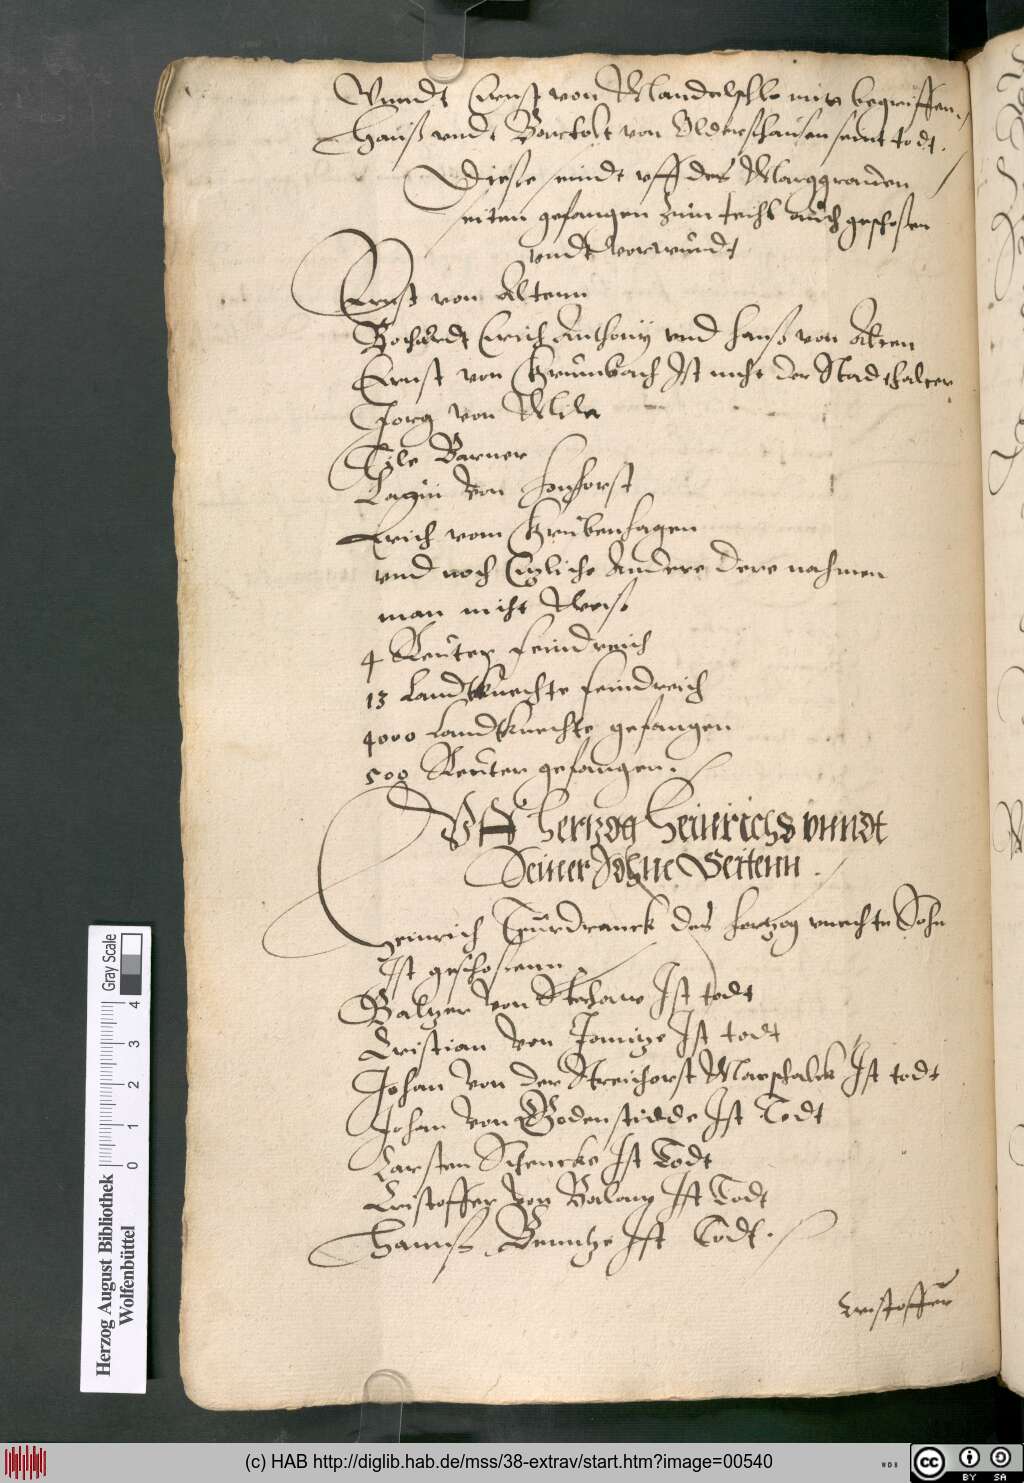 Vnndt Ernst von Mandelschlo mit begriffen.
Hanß vndt Bartolt von Olderschausen seint todt.
Diese seindt vff des Marggraven
seiten gefangen zum teihl auch geschoßen
vndt vorwundt
Ernst von Altenn
Bochardt Erich Anthony vnd Hanß von Alten
Ernst von Grumbach Ist nicht der Stadthalter
Jorg von Mila
Tyle Barner
von Honhorst
Erich vom Grubenhagen
vnd noch Etzliche Andere dere nahmen
man nicht Weiß
4 Reuter feindreich
13 Landtknechte feindreich
4000 Landtknechte gefangen
500 Reuter gefangen.
Vff Hertzog Heinrichs vnndt
Seiner Sohne Seitenn.
Heinrich Teurdranck des Hertzog vnechte Sohn
Ist geschoßenn
Baltzer von Stechow Ist todt
Cristian von Ist todt
Johan von der Streithorst Marschalck Ist todt
Johan von Godenstidde Ist Todt
Carsten Schencke Ist Todt
Cristoffer von Ist Todt
Hannß Ist Todt.
Cristoffer
Gray Scale
0 1 2 3 4
Herzog August Bibliothek
Wolfenbüttel
(c) HAB http://diglib.hab.de/mss/38-extrav/start.htm?image=00540
WDB
CC BY SA